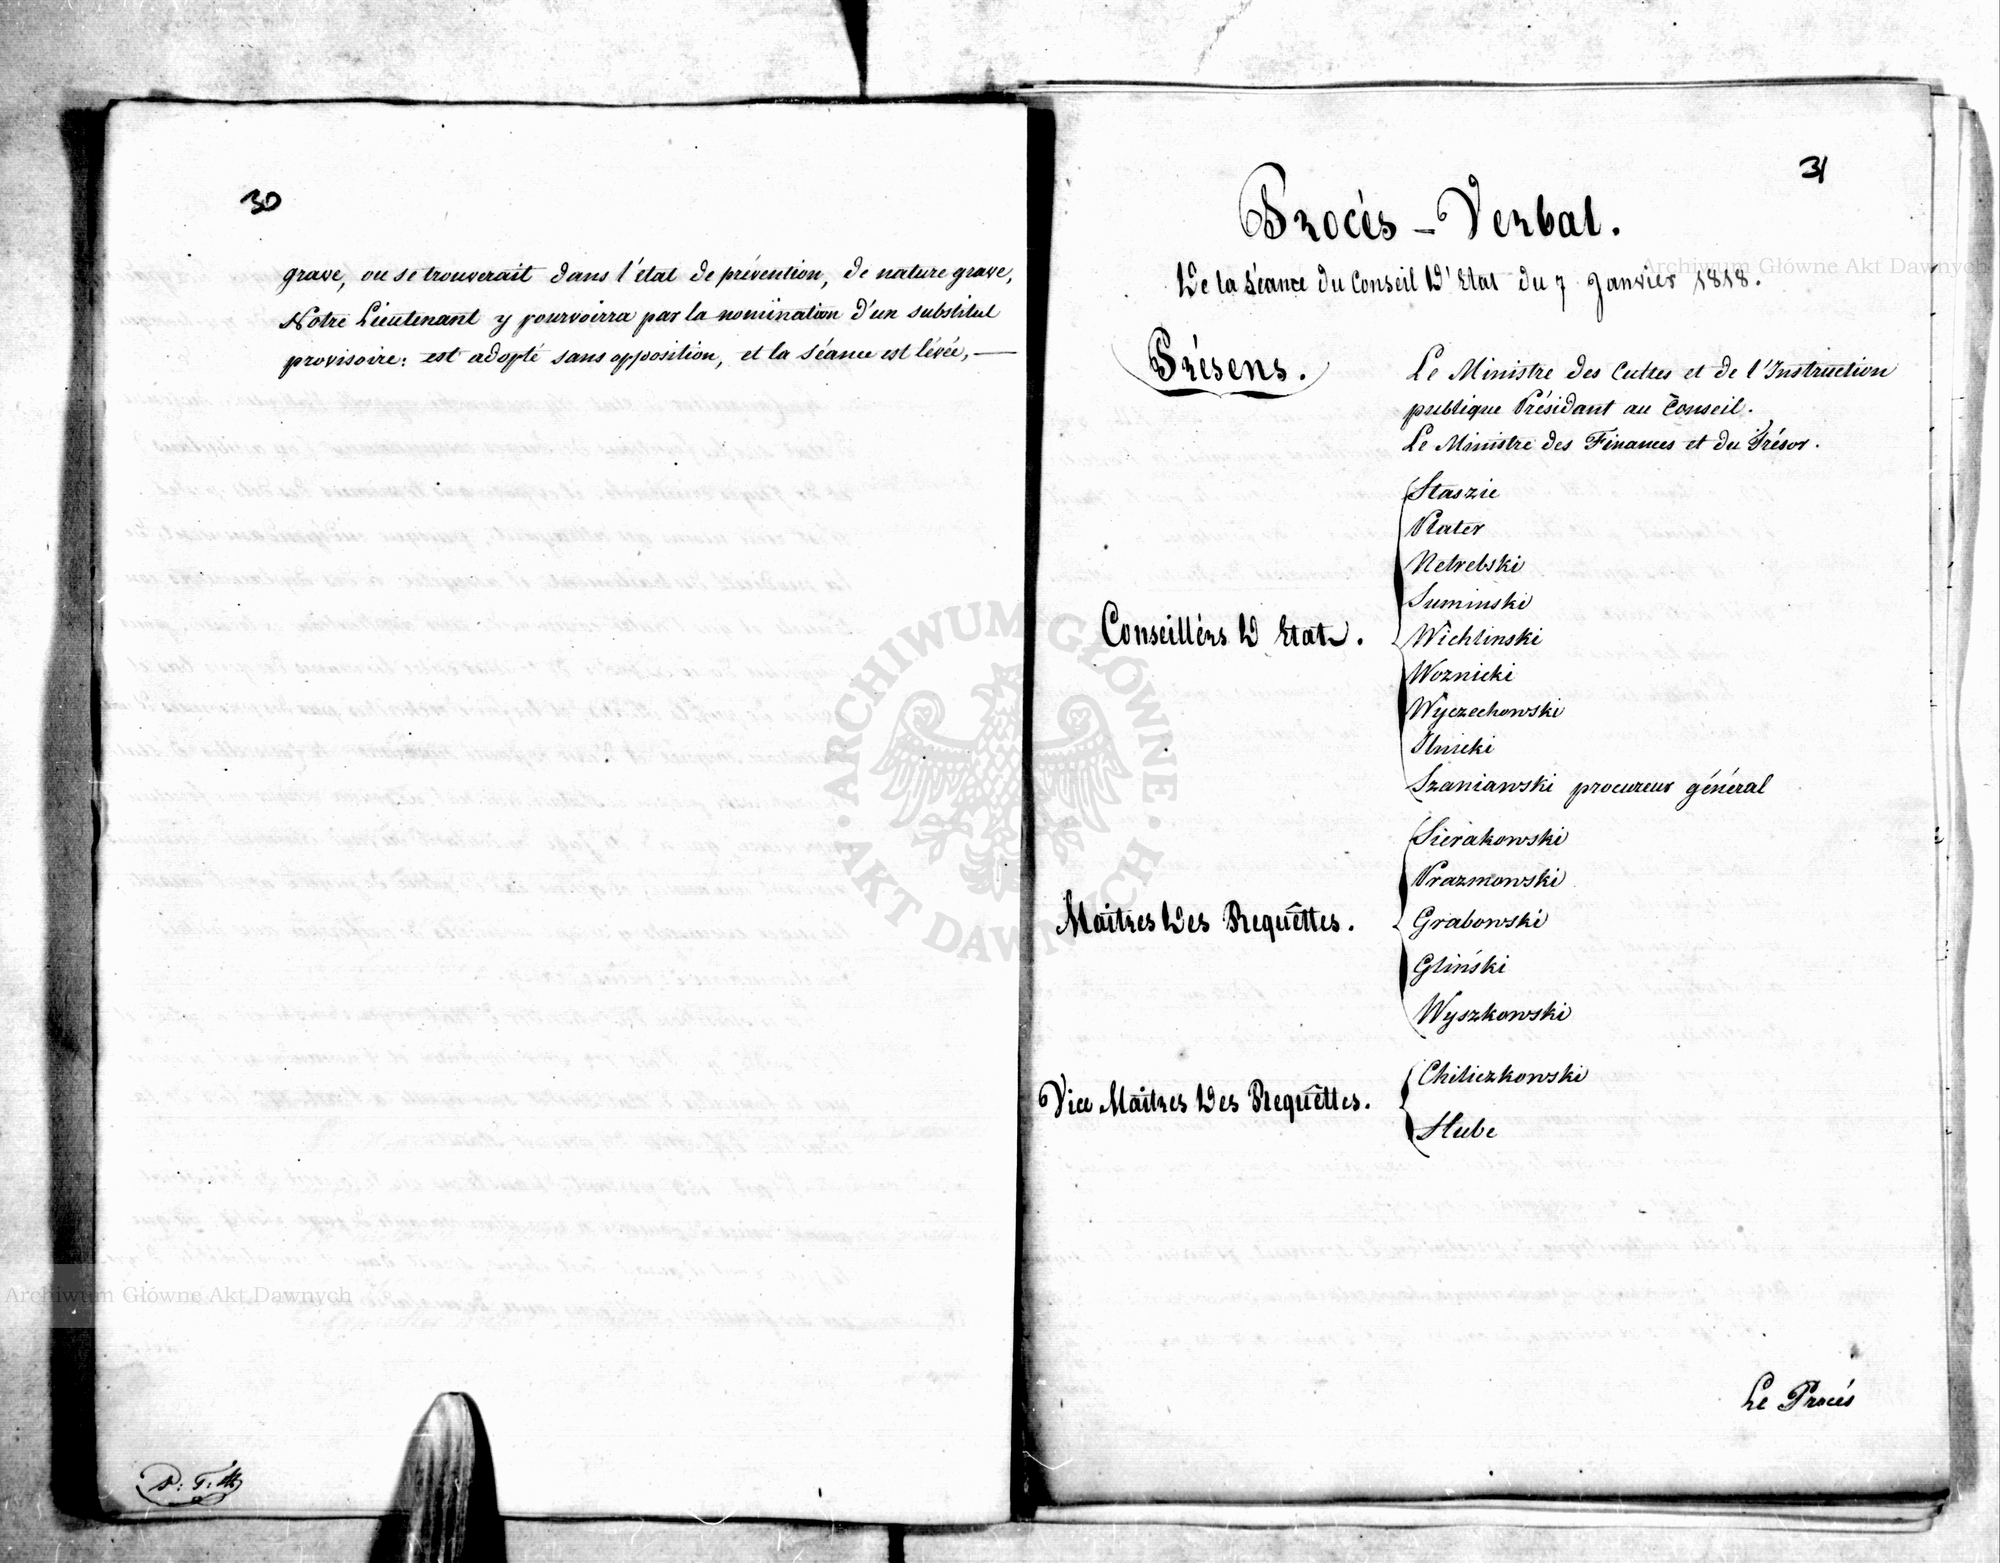 30
grave, ou se trouverait dans l'état de prévention, de nature grave,
Notre Lieutenant y pourvoirra par la nomination d'un substitut
provisoire: est adopté sans opposition, et la séance est lévée, —
31
Procès - Verbal.
De la Séance du Conseil D'Etat du 7 Janvier 1818.
Présens.
Le Ministre des Cultes et de l'Instruction
publique Présidant au Conseil.
Le Ministre des Finances et du Trésor.
Conseillérs D'Etat.
Staszic
Plater
Netrebski
Suminski
Wichlinski
Woznicki
Wyczechowski
Ilnicki
Szaniawski procureur général
Maitres Des Requêttes.
Sierakowski
Prazmowski
Grabowski
Gliński
Wyszkowski
Vice Maitres Des Requêttes.
Chiliczkowski
Hube
Le Procés
Archiwum Główne Akt Dawnych
Archiwum Główne Akt Dawnych
ARCHIWUM GŁÓWNE
AKT DAWNYCH